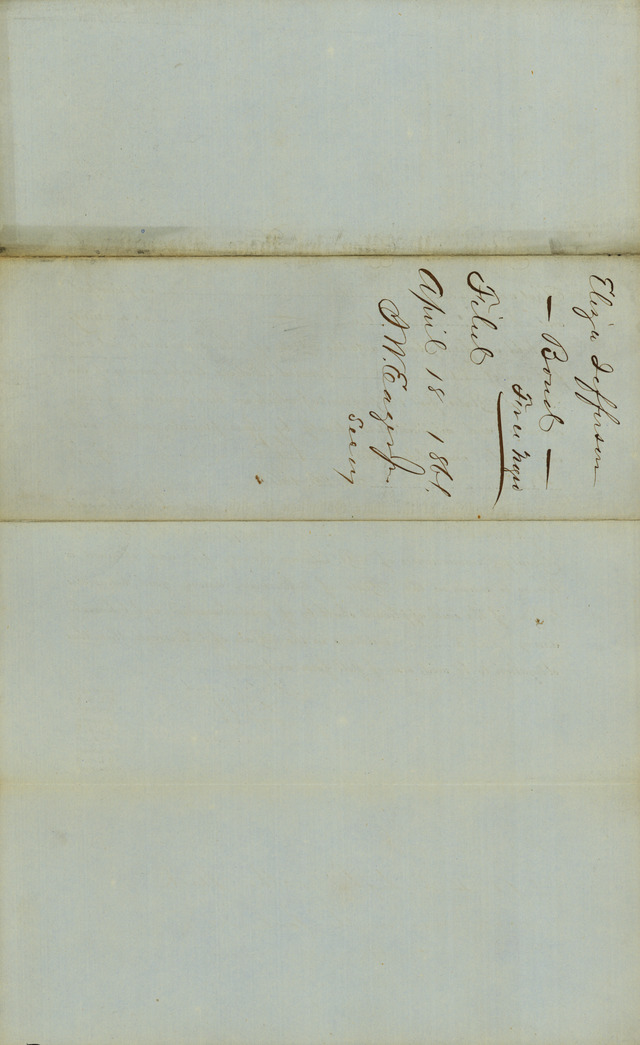 Eliza Jefferson
— Bond —
Free Negro
Filed
April 18 1861.
Secy